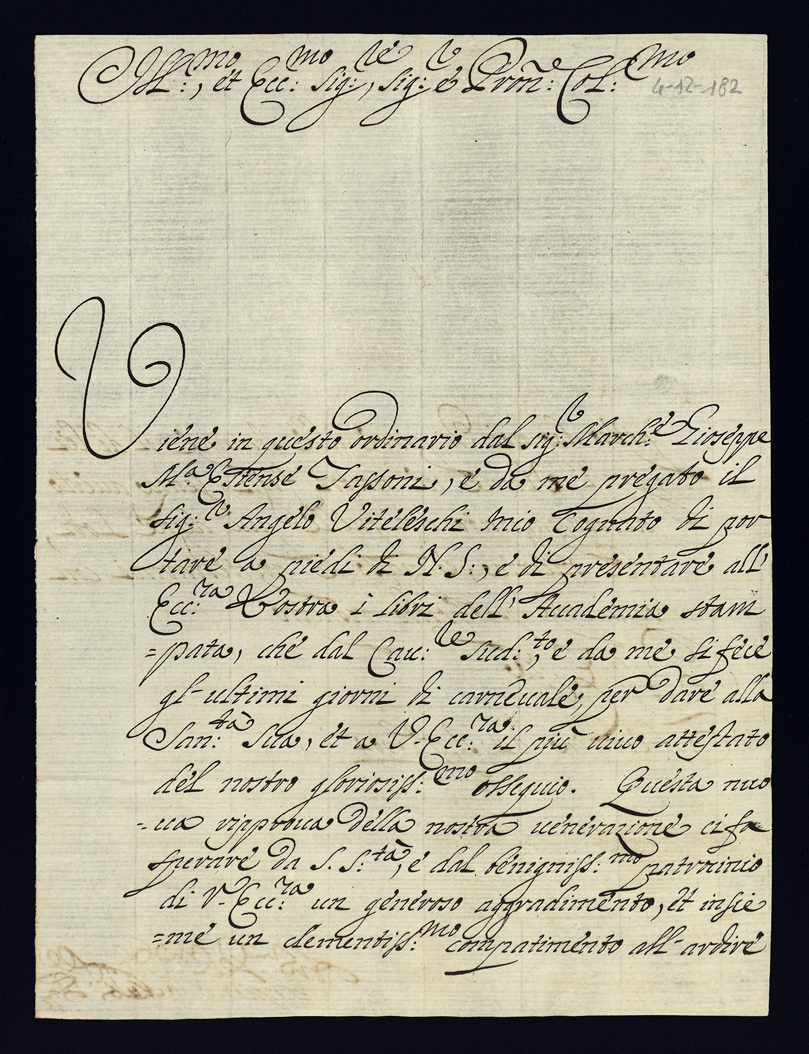 Ill:mo, et Ecc:mo Sig:re, Sig:r e Pron:e Col:mo
4-12-182
Viene in questo ordinario dal sig:r March:e Gioseppe
M:a Estense Tassoni, e da me pregato il
Sig:r Angelo Viteleschi mio Cognato di por
tare a piedi di N. S:, e di presentare all'
Ecc:za Vostra i libri dell' Accademia stam
=pata, che dal Cau:re Sud:to, e da me si fece
gl'ultimi giorni di carneuale, per dare alla
San:tà Sua, et a V. Ecc:za il più uiuo attestato
del nostro gloriosiss:mo ossequio. Questa nuo
=ua ripproua della nostra uenerazione ci fa
sperare da S. S:tà, e dal benigniss:mo patrocinio
di V. Ecc:za un generoso aggradimento, et insie
=me un clementiss:mo compatimento all'ardire